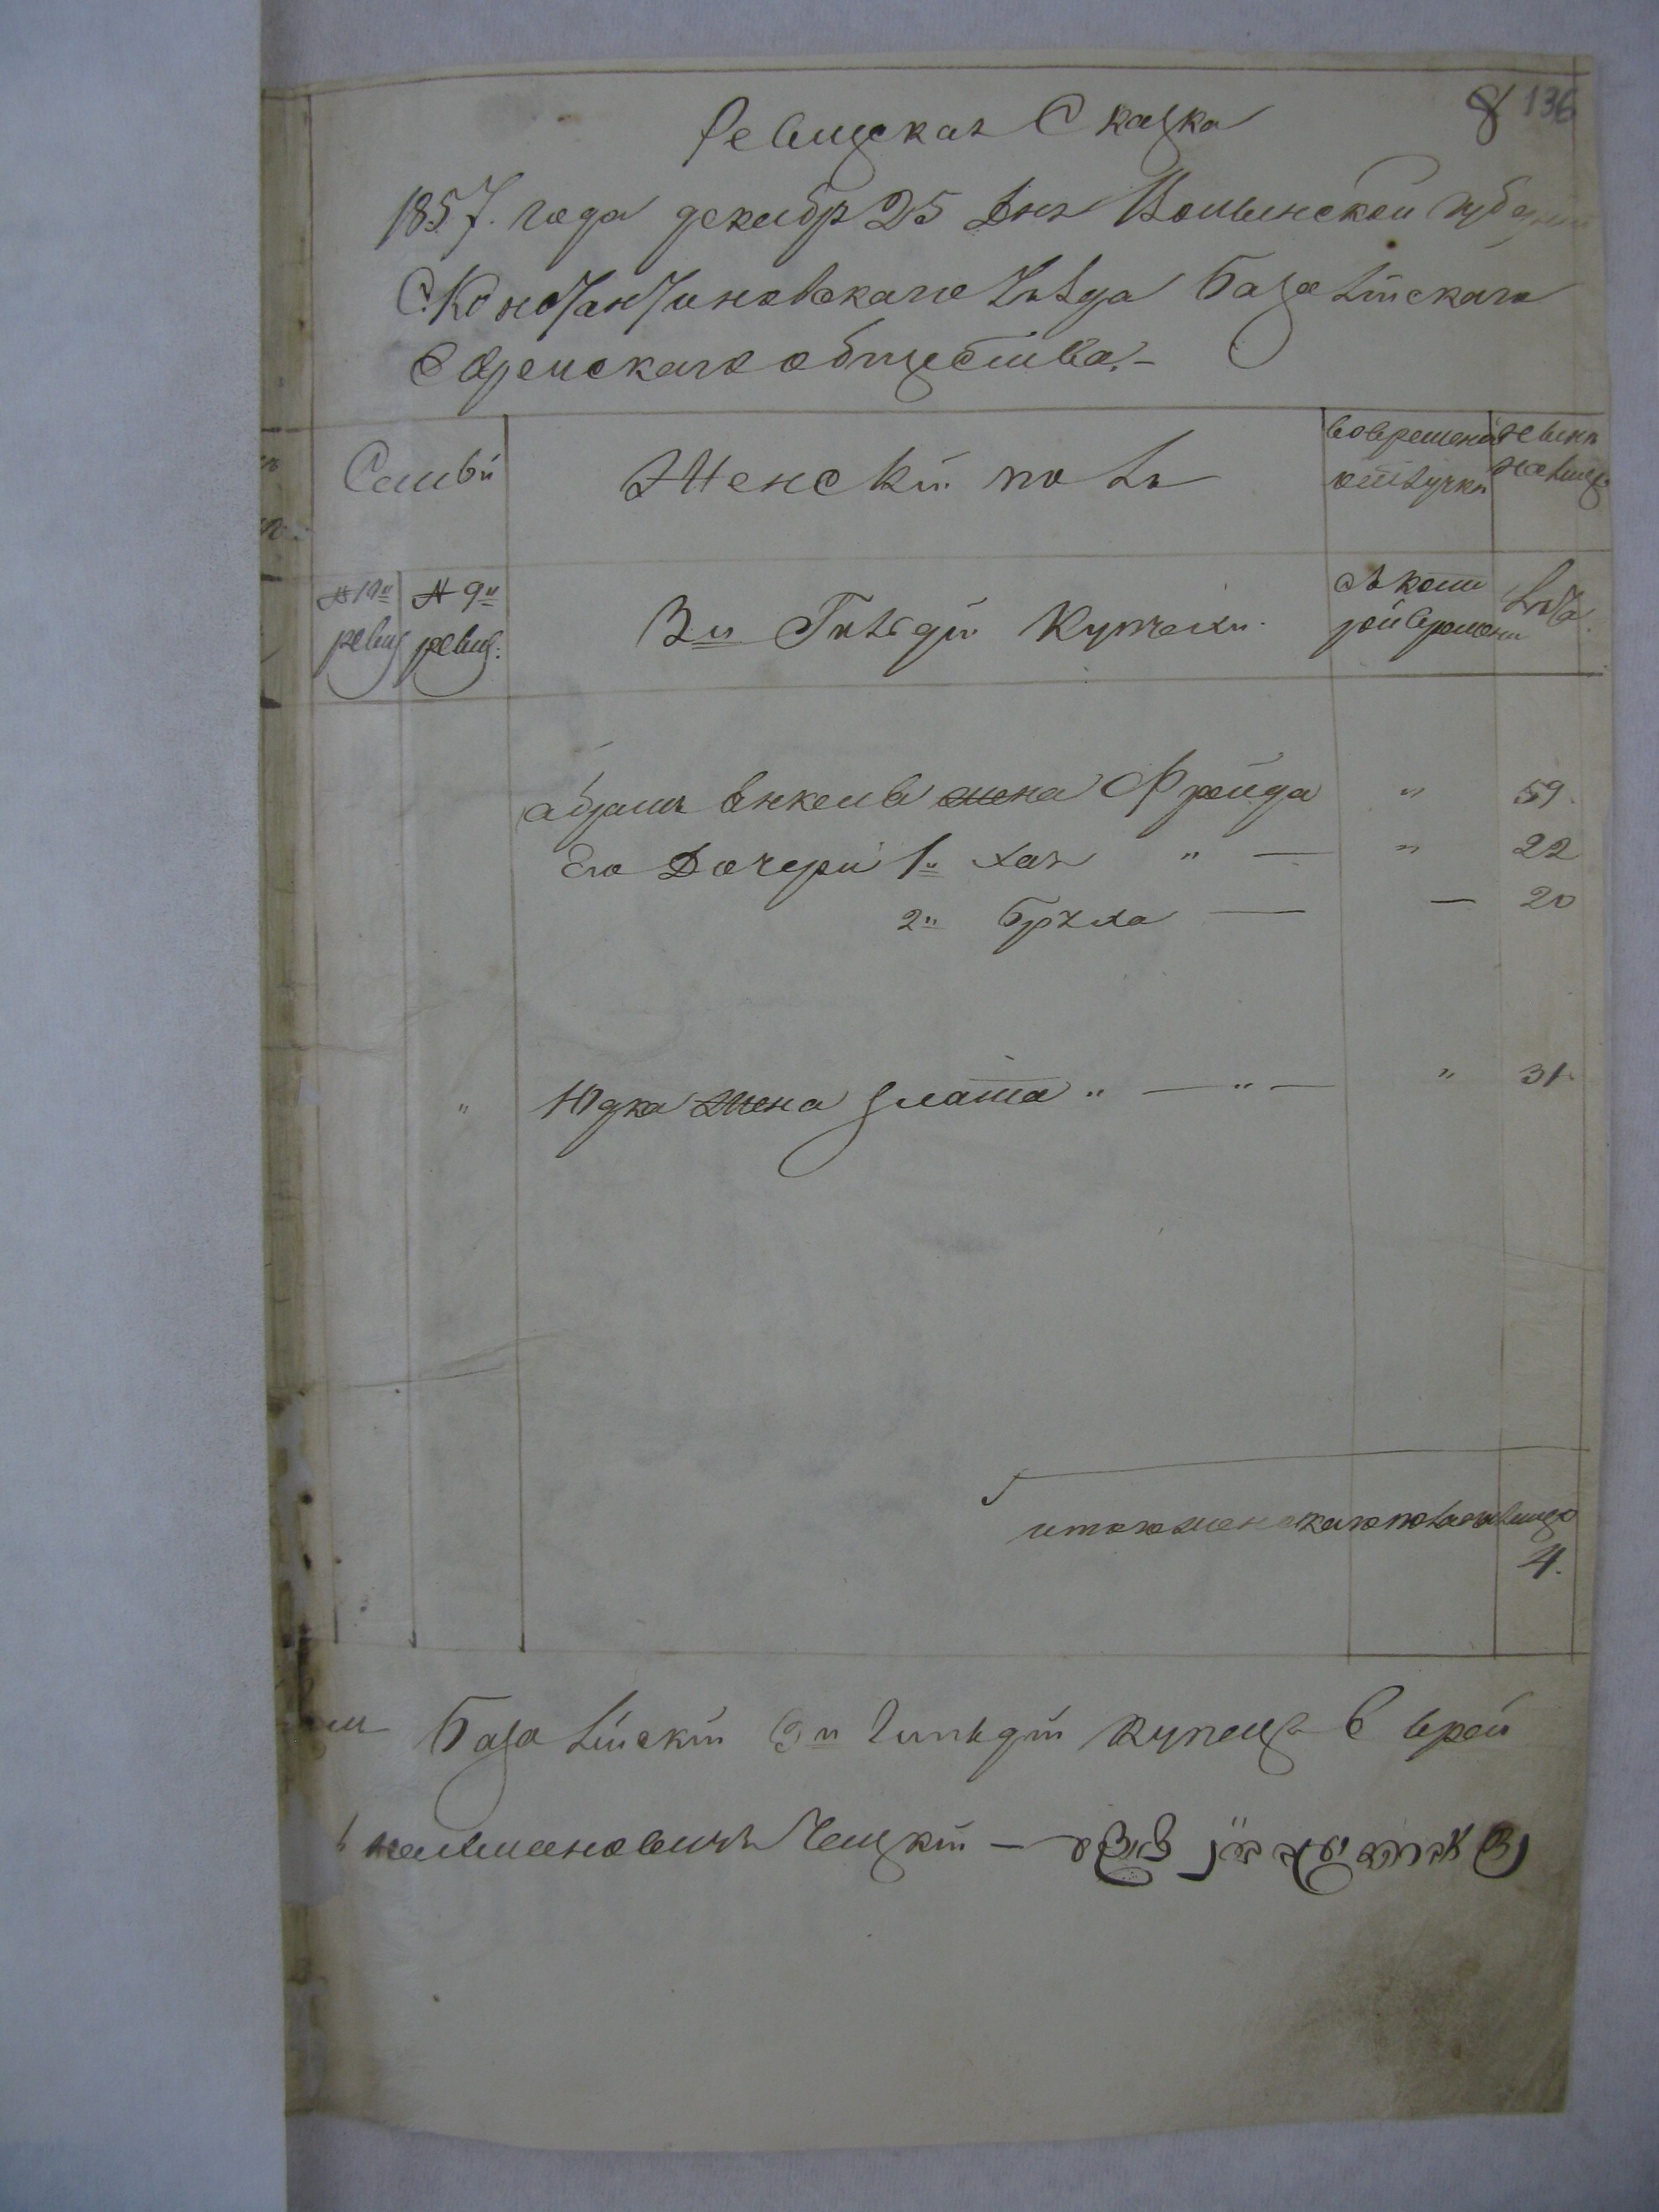 136
Ревизская Сказка
1857. года декабр 25 дня Волынской губерни
С. Константиновскаго уѣзда Базалійскаго
Еврейскаго общества. –
Семьи
Женскій полъ
во времено отлучки
ныне на лицо
№ 10й ревиз
№ 9й ревиз:
3й Гильдій Купчехи.
съ кото рой времени
лѣта.
Абрамъ Янкель жена Фрейда " 59.
Его Дочери 1я Хая " — " 22
2я Брѵха — — 20
" Юдка жена Злата " — " — " 31.
итого женскаго пола на лицо
4.
Базалійскій 3й Гильдій купецъ Еврей
Кальмановичъ Чецкій —